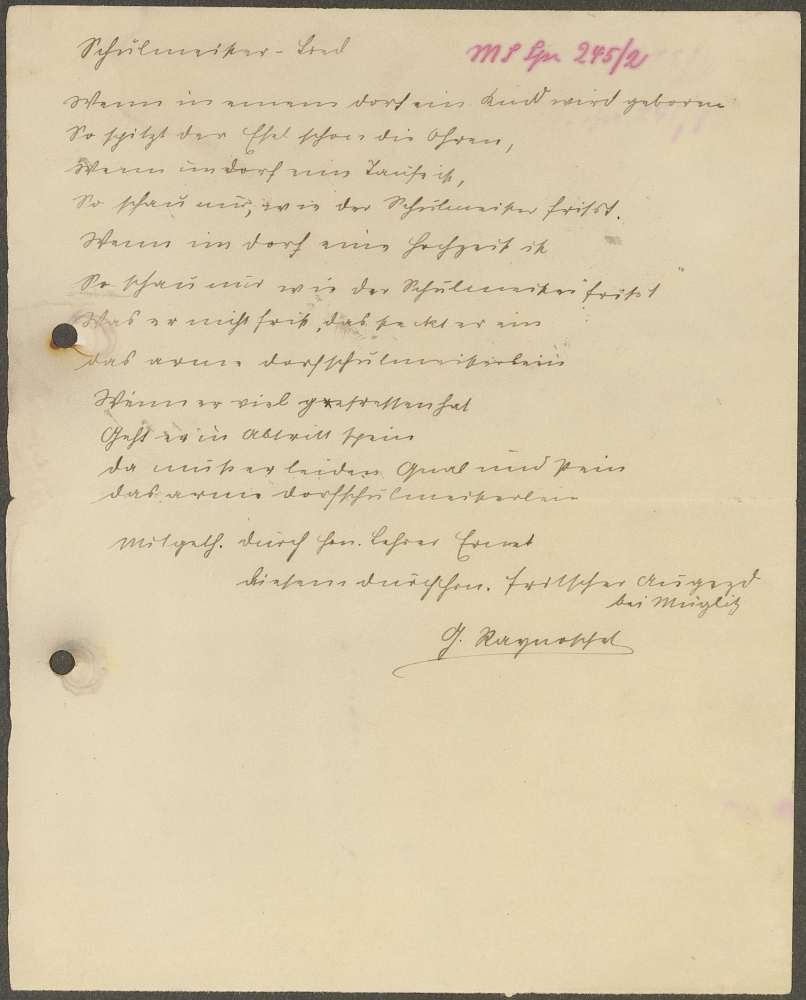 Schulmeister-Lied
MS Spr 245/2
Wenn in einem dorf ein Kind wird geboren
So spitzt der Esel schon die Ohren,
Wenn im dorf ein Taufe ist,
So schau nur, wie der Schulmeister frisst.
Wenn im dorf eine Hochzeit ist
So schau nur wie der Schulmeister frisst
Was er nicht frist, das steckt er ein
das arme dorfschulmeisterlein
Wenn er viel gefressen hat
Geht er in Abtritt
da muss er leiden Qual und Pein
das arme dorfschulmeisterlein
Mitgeth. durch Hrn. Lehrer Ernst
diesem durch Hrn. Fritscher Augezd
bei Müglitz